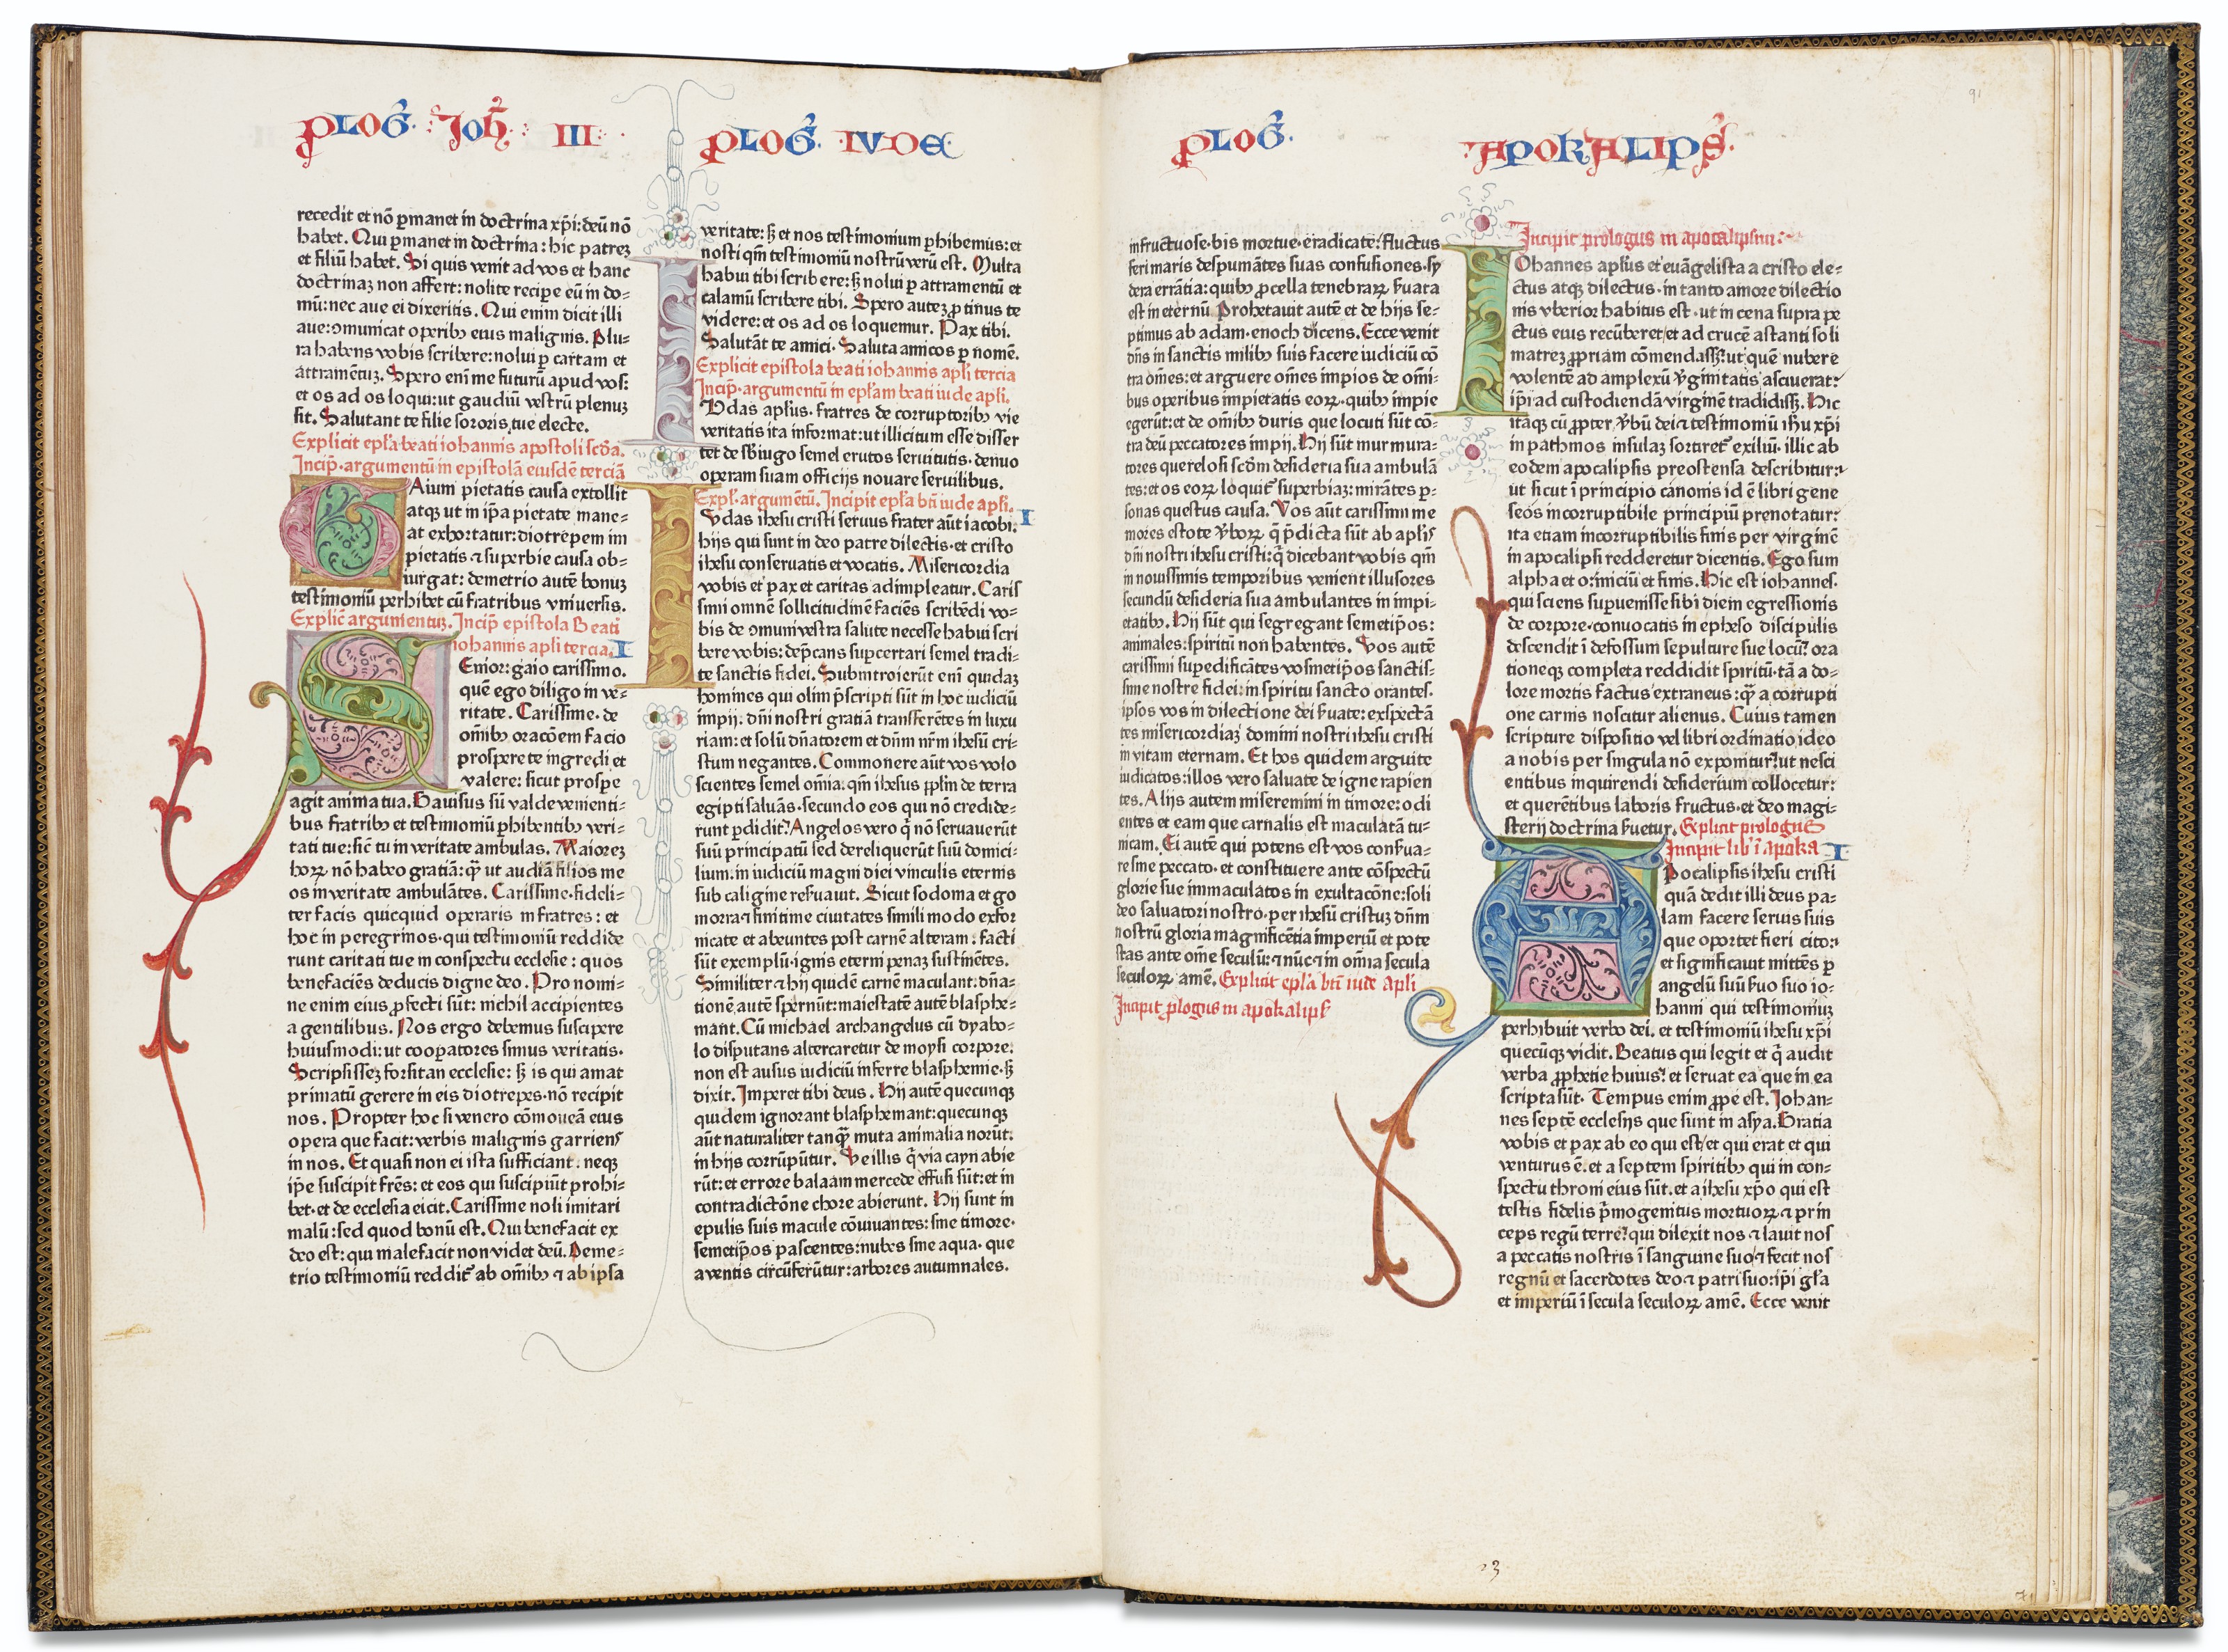 PLOGꝰ. Joh̄. III.
recedit et nō ꝑmanet in doctrina xp̄i: deū nō
habet. Qui ꝑmanet in doctrina: hic patreꝫ
et filiū habet. Si quis venit ad vos et hanc
doctrinaꝫ non affert: nolite recipe eū in do=
mū: nec aue ei dixeritis. Qui enim dicit illi
aue: ↄmunicat operibꝫ eius malignis. Plu=
ra habens vobis scribere: nolui ꝑ cartam et
attramētuꝫ. Spero enī me futurū apud vos:
et os ad os loqui: ut gaudiū vestrū plenuꝫ
sit. Salutant te filie sororis tue electe.
Explicit epl'a beati iohannis apostoli scd̄a.
Incip̄. argumentū in epistolā eiusdē terciā
GAium pietatis causa extollit
atqꝫ ut in ip̄a pietate mane=
at exhortatur: diotrepem im
pietatis ⁊ superbie causa ob=
iurgat: demetrio autē bonuꝫ
testimoniū perhibet cū fratribus vniuersis.
Explic̄ argumentuꝫ. Incip̄ epistola Beati
iohannis apl̄i tercia. I
SEnior: gaio carissimo.
quē ego diligo in ve=
ritate. Carissime. de
om̄ibꝫ oracōem facio
prospere te ingredi et
valere: sicut prospe
agit anima tua. Gauisus sū valde venienti=
bus fratribꝫ et testimoniū ꝑhibentibꝫ veri=
tati tue: sic̄ tu in veritate ambulas. Maioreꝫ
hoꝝ nō habeo gratiā: qꝫ ut audiā filios me
os in veritate ambulātes. Carissime. fideli=
ter facis quicquid operaris in fratres: et
hoc in peregrinos. qui testimoniū reddide
runt caritati tue in conspectu ecclesie: quos
benefaciēs deducis digne deo. Pro nomi=
ne enim eius ꝓfecti sūt: nichil accipientes
a gentilibus. Nos ergo debemus suscipere
huiusmodi: ut cooꝑatores simus veritatis.
Scripsisseꝫ forsitan ecclesie: sꝫ is qui amat
primatū gerere in eis diotrepes. nō recipit
nos. Propter hoc si venero cōmoueā eius
opera que facit: verbis malignis garriens
in nos. Et quasi non ei ista sufficiant. neqꝫ
ip̄e suscipit fr̄es: et eos qui suscipiūt prohi=
bet. et de ecclesia eicit. Carissime noli imitari
malū: sed quod bonū est. Qui benefacit ex
deo est: qui malefacit non videt deū. Deme=
trio testimoniū reddit̄ ab om̄ibꝫ ⁊ ab ipsa
PLOGꝰ. IVDE
veritate: sꝫ et nos testimonium ꝑhibemus: et
nosti qm̄ testimoniū nostrū verū est. Multa
habui tibi scribere: sꝫ nolui ꝑ attramentū et
calamū scribere tibi. Spero auteꝫ ꝓtinus te
videre: et os ad os loquemur. Pax tibi.
Salutāt te amici. Saluta amicos ꝑ nomē.
Explicit epistola beati iohannis apl̄i tercia
Incip̄. argumentū in epl'am beati iude apl̄i.
IVdas apl'us. fratres de corruptoribꝫ vie
veritatis ita informat: ut illicitum esse disser
tet de s̄biugo semel erutos seruitutis. denuo
operam suam officijs nouare seruilibus.
Expl̄. argumētū. Incipit epl'a btī iude apl̄i.
IVdas ihesu cristi seruus frater aūt iacobi. I
hijs qui sunt in deo patre dilectis. et cristo
ihesu conseruatis et vocatis. Misericordia
vobis et pax et caritas adimpleatur. Caris
simi omnē sollicitudinē faciēs scribēdi vo=
bis de ↄmuni vestra salute necesse habui scri
bere vobis: dep̄cans suꝑcertari semel tradi=
te sanctis fidei. Subintroierūt enī quidaꝫ
homines qui olim p̄scripti sūt in hoc iudiciū
impij. dn̄i nostri gratiā transferētes in luxu
riam: et solū dn̄atorem et dn̄m nr̄m ihesū cri=
stum negantes. Commonere aūt vos volo
scientes semel om̄ia: qm̄ ihesus ppl̄m de terra
egipti saluās. secundo eos qui nō credide=
runt ꝑdidit? Angelos vero q̄ nō seruauerūt
suū principatū sed dereliquerūt suū domici=
lium. in iudiciū magni diei vinculis eternis
sub caligine res̄uauit. Sicut sodoma et go
morra ⁊ finitime ciuitates simili modo exfor
nicate et abeuntes post carnē alteram: facti
sūt exemplū. ignis eterni penaꝫ sustinētes.
Similiter ⁊ hij quidē carnē maculant: dn̄a=
tionē autē spernūt: maiestatē autē blasphe=
mant. Cū michael archangelus cū dyabo=
lo disputans altercaretur de moysi corpore.
non est ausus iudiciū inferre blasphemie. sꝫ
dixit. Imperet tibi deus. Hij autē quecunqꝫ
quidem ignorant blasphemant: quecunqꝫ
aūt naturaliter tanqꝫ muta animalia norūt.
in hijs corrūpūtur. Ve illis q̄ via cayn abie
rūt: et errore balaam mercede effusi sūt: et in
contradictōne chore abierunt. Hij sunt in
epulis suis macule cōuiuantes: sine timore.
semetip̄os pascentes: nubes sine aqua. que
a ventis circūferūtur: arbores autumnales.
PLOGꝰ.
infructuose. bis mortue. eradicate: fluctus
feri maris despumātes suas confusiones. sy
dera errātia: quibꝫ ꝓcella tenebraꝝ s̄uata
est in eternū. Prohetauit autē et de hijs se=
ptimus ab adam. enoch dicens. Ecce venit
dn̄s in sanctis milibꝫ suis facere iudiciū cō
tra om̄es: et arguere om̄es impios de om̄i=
bus operibus impietatis eoꝝ. quibꝫ impie
egerūt: et de om̄ibꝫ duris que locuti sūt cō=
tra deū peccatores impij. Hij sūt murmura=
tores querelosi scd̄m desideria sua ambulā
tes: et os eoꝝ loquit̄ superbiaꝫ: mirātes ꝑ=
sonas questus causa. Vos aūt carissimi me
mores estote v̄boꝝ q̄ p̄dicta sūt ab apl̄is
dn̄i nostri ihesu cristi: q̄ dicebant vobis qm̄
in nouissimis temporibus venient illusores
secundū desideria sua ambulantes in impi=
etatibꝫ. Hij sūt qui segregant semetip̄os:
animales: spiritū non habentes. Vos autē
carissimi suꝑedificātes vosmetip̄os sanctis=
sime nostre fidei: in spiritu sancto orantes.
ipsos vos in dilectione dei s̄uate: exspectā
tes misericordiaꝫ domini nostri ihesu cristi
in vitam eternam. Et hos quidem arguite
iudicatos: illos vero saluate de igne rapien
tes. Alijs autem miseremini in timore: odi
entes et eam que carnalis est maculatā tu=
nicam. Ei autē qui potens est vos cons̄ua=
re sine peccato. et constituere ante cōspectū
glorie sue immaculatos in exultacōne: soli
deo saluatori nostro. per ihesū cristuꝫ dn̄m
nostrū gloria magnificētia imperiū et pote
stas ante om̄e seculū: ⁊ nūc ⁊ in om̄ia secula
seculoꝝ amē. Explicit epl'a btī iude apl̄i
Incipit ꝓlogus in apokalips̄
APOKALIPSꝰ.
91
Incipit prologus in apocalipsim:
IOhannes apl'us et euāgelista a cristo ele=
ctus atqꝫ dilectus. in tanto amore dilectio
nis vberior habitus est. ut in cena supra pe
ctus eius recūberet. et ad crucē astanti soli
matreꝫ ꝓpriam cōmendassꝫ: ut quē nubere
volentē ad amplexū v̄ginitatis asciuerat:
ip̄i ad custodiendā virginē tradidissꝫ. Hic
itaqꝫ cū ꝓpter v̄bū dei ⁊ testimoniū ihū xp̄i
in pathmos insulaꝫ sortiret̄ exiliū. illic ab
eodem apocalipsis preostensa describitur:
ut sicut ī principio canonis id ē libri gene
seos incorruptibile principiū prenotatur:
ita etiam incorruptibilis finis per virginē
in apocalipsi redderetur dicentis. Ego sum
alpha et o: iniciū et finis. Hic est iohannes.
qui sciens suꝑuenisse sibi diem egressionis
de corpore. conuocatis in epheso discipulis
descendit ī defossum sepulture sue locū? ora
tioneqꝫ completa reddidit spiritū. tā a do=
lore mortis factus extraneus: qꝫ a corrupti
one carnis noscitur alienus. Cuius tamen
scripture dispositio vel libri ordinatio ideo
a nobis per singula nō exponitur? ut nesci
entibus inquirendi desiderium collocetur:
et querētibus laboris fructus. et deo magi=
sterij doctrina s̄uetur. Explicit prologus
Incipit lib' ī apoka I
APocalipsis ihesu cristi
quā dedit illi deus pa=
lam facere seruis suis
que oportet fieri cito:
et significauit mittēs ꝑ
angelū suū s̄uo suo io=
hanni qui testimoniuꝫ
perhibuit verbo dei. et testimoniū ihesu xp̄i
quecūqꝫ vidit. Beatus qui legit et q̄ audit
verba ꝓphetie huius? et seruat ea que in ea
scripta sūt. Tempus enim ꝓpe est. Johan=
nes septē ecclesijs que sunt in asya. Gratia
vobis et pax ab eo qui est/et qui erat et qui
venturus ē. et a septem spiritibꝫ qui in con=
spectu throni eius sūt. et a ihesu xp̄o qui est
testis fidelis p̄mogenitus mortuoꝝ ⁊ prin
ceps regū terre? qui dilexit nos ⁊ lauit nos
a peccatis nostris ī sanguine suo/⁊ fecit nos
regnū et sacerdotes deo ⁊ patri suo: ip̄i gl'a
et imperiū ī secula seculoꝝ amē. Ecce venit
23